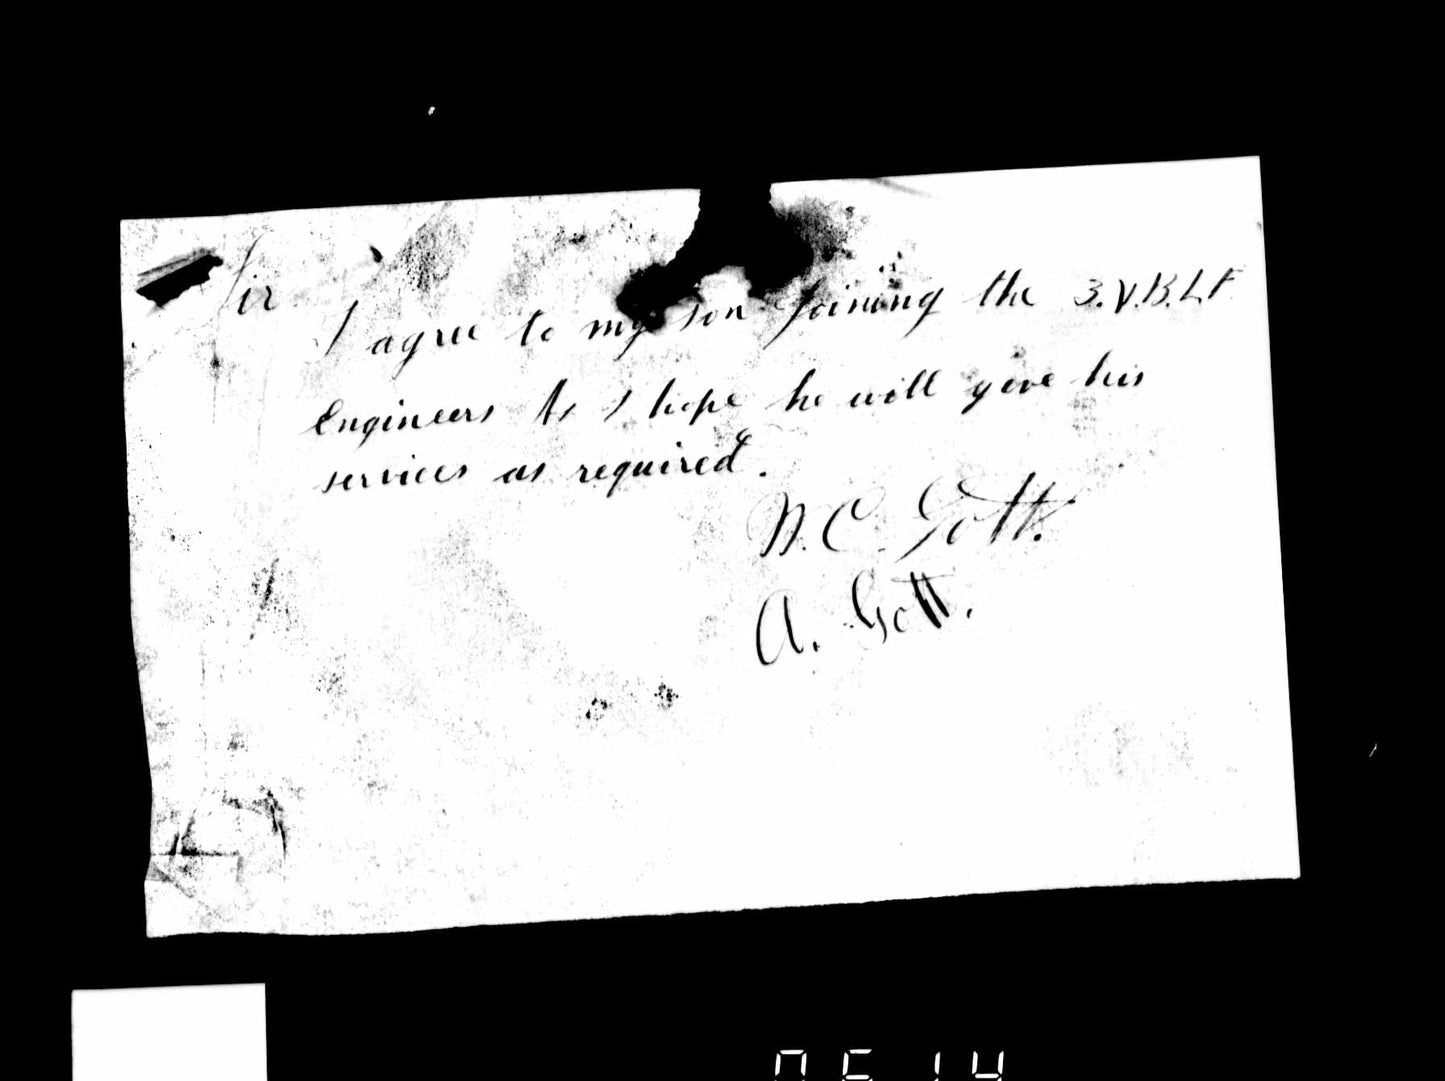 Sir
I agree to my son joining the 3.V.B.L.F
Engineers As I hope he will give his
services as required.
W. C. Gott.
A. Gott.
0614